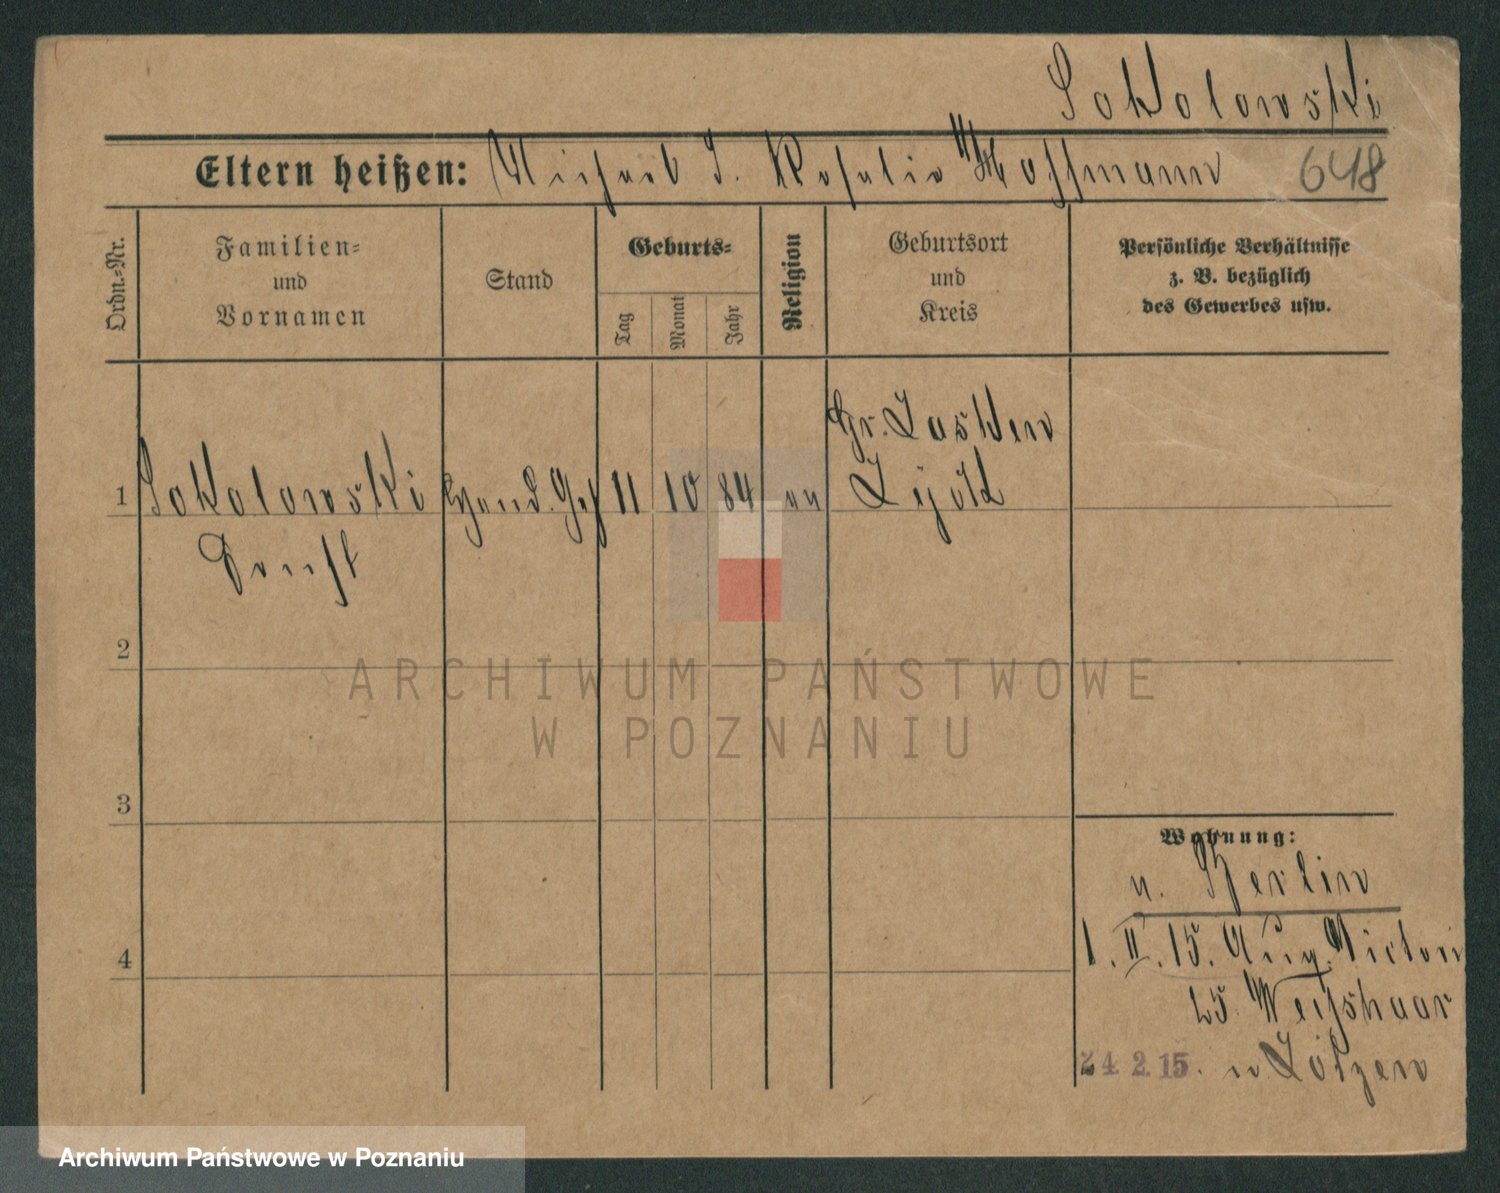 Sokolowski
Eltern heißen: Michael S. Rosalie Hoffmann 648
Ordn.=Nr.
Familien=
und
Vornamen
Stand
Geburts=
Tag
Monat
Jahr
Religion
Geburtsort
und
Kreis
Persönliche Verhältnisse
z. B. bezüglich
des Gewerbes usw.
Gr. Lasken
1 Sokolowski Hand. Geh 11 10 84 ev Lyck
Ernst
2
ARCHIWUM PAŃSTWOWE
W POZNANIU
3
Wohnung:
n. Berlin
4
1. II. 15. Aug. Victori
25 Weishaar
24. 2. 15. n Lötzen
Archiwum Państwowe w Poznaniu